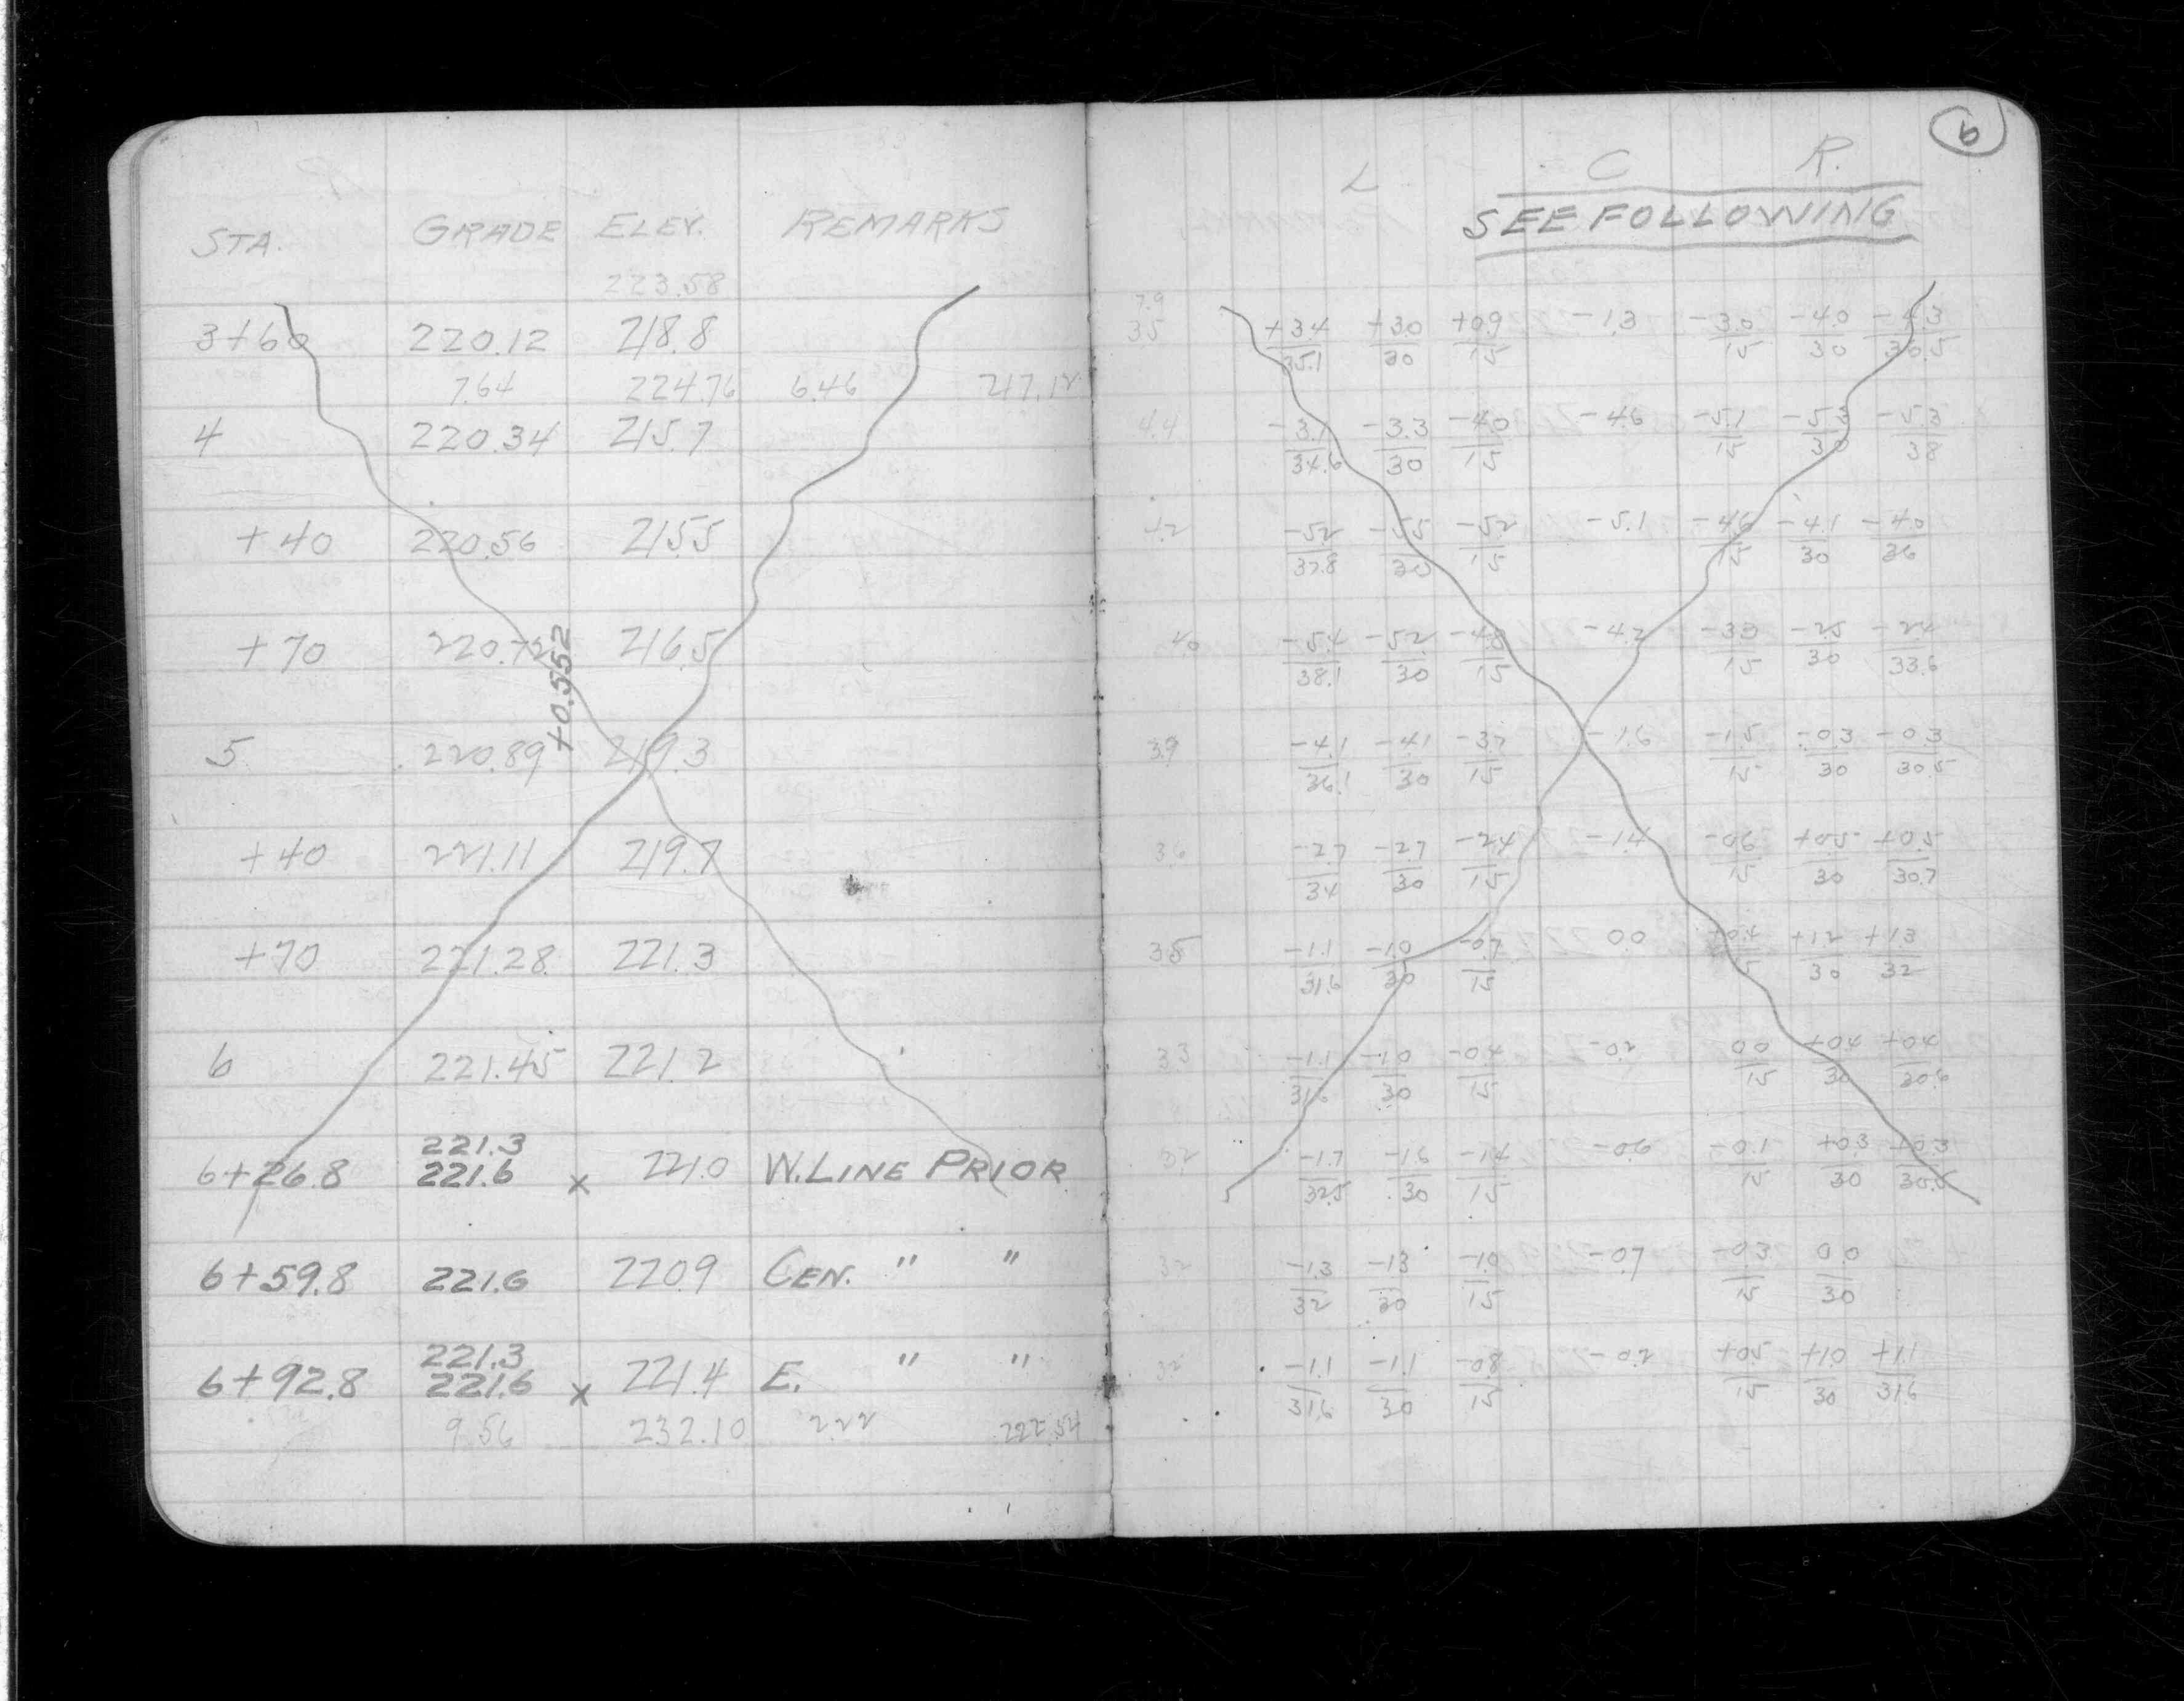 STA. GRADE ELEV. REMARKS
223.58
3+60 220.12 218.8
7.64 224.76 6.46 217.12
4 220.34 215.7
+40 220.56 215.5
+70 220.72 216.5
+0.552
5 220.89 219.3
+40 221.11 219.7
+70 221.28 221.3
6 221.45 221.2
221.3
6+26.8 221.6 x 221.0 W. LINE PRIOR
6+59.8 221.6 220.9 CEN. " "
221.3
6+92.8 221.6 x 221.4 E. " "
9.56 232.10 2.22 222.54
6
L C R.
SEE FOLLOWING
7.9
35 +3.4 +3.0 +0.9 -1.3 -3.0 -4.0 -4.3
35.1 30 15 15 30 36.5
4.4 -3.1 -3.3 -4.0 -4.6 -5.1 -5.3 -5.3
34.6 30 15 15 30 38
4.2 -5.2 -5.5 -5.2 -5.1 -4.6 -4.1 -4.0
37.8 30 15 15 30 36
4.0 -5.4 -5.2 -4.8 -4.2 -3.3 -2.5 -2.4
38.1 30 15 15 30 33.6
3.9 -4.1 -4.1 -3.7 -1.6 -1.5 -0.3 -0.3
36.1 30 15 15 30 30.5
3.6 -2.7 -2.7 -2.4 -1.4 -0.6 +0.5 +0.5
34 30 15 15 30 30.7
3.5 -1.1 -1.0 -0.7 0.0 +0.4 +1.2 +1.3
31.6 30 15 15 30 32
3.3 -1.1 -1.0 -0.4 -0.2 0.0 +0.4 +0.4
31.6 30 15 15 30 30.6
3.2 -1.7 -1.6 -1.4 -0.6 -0.1 +0.3 +0.3
32.5 30 15 15 30 30.5
3.2 -1.3 -1.3 -1.0 -0.7 -0.3 0.0
32 30 15 15 30
3.2 -1.1 -1.1 -0.8 -0.2 +0.5 +1.0 +1.1
31.6 30 15 15 30 31.6